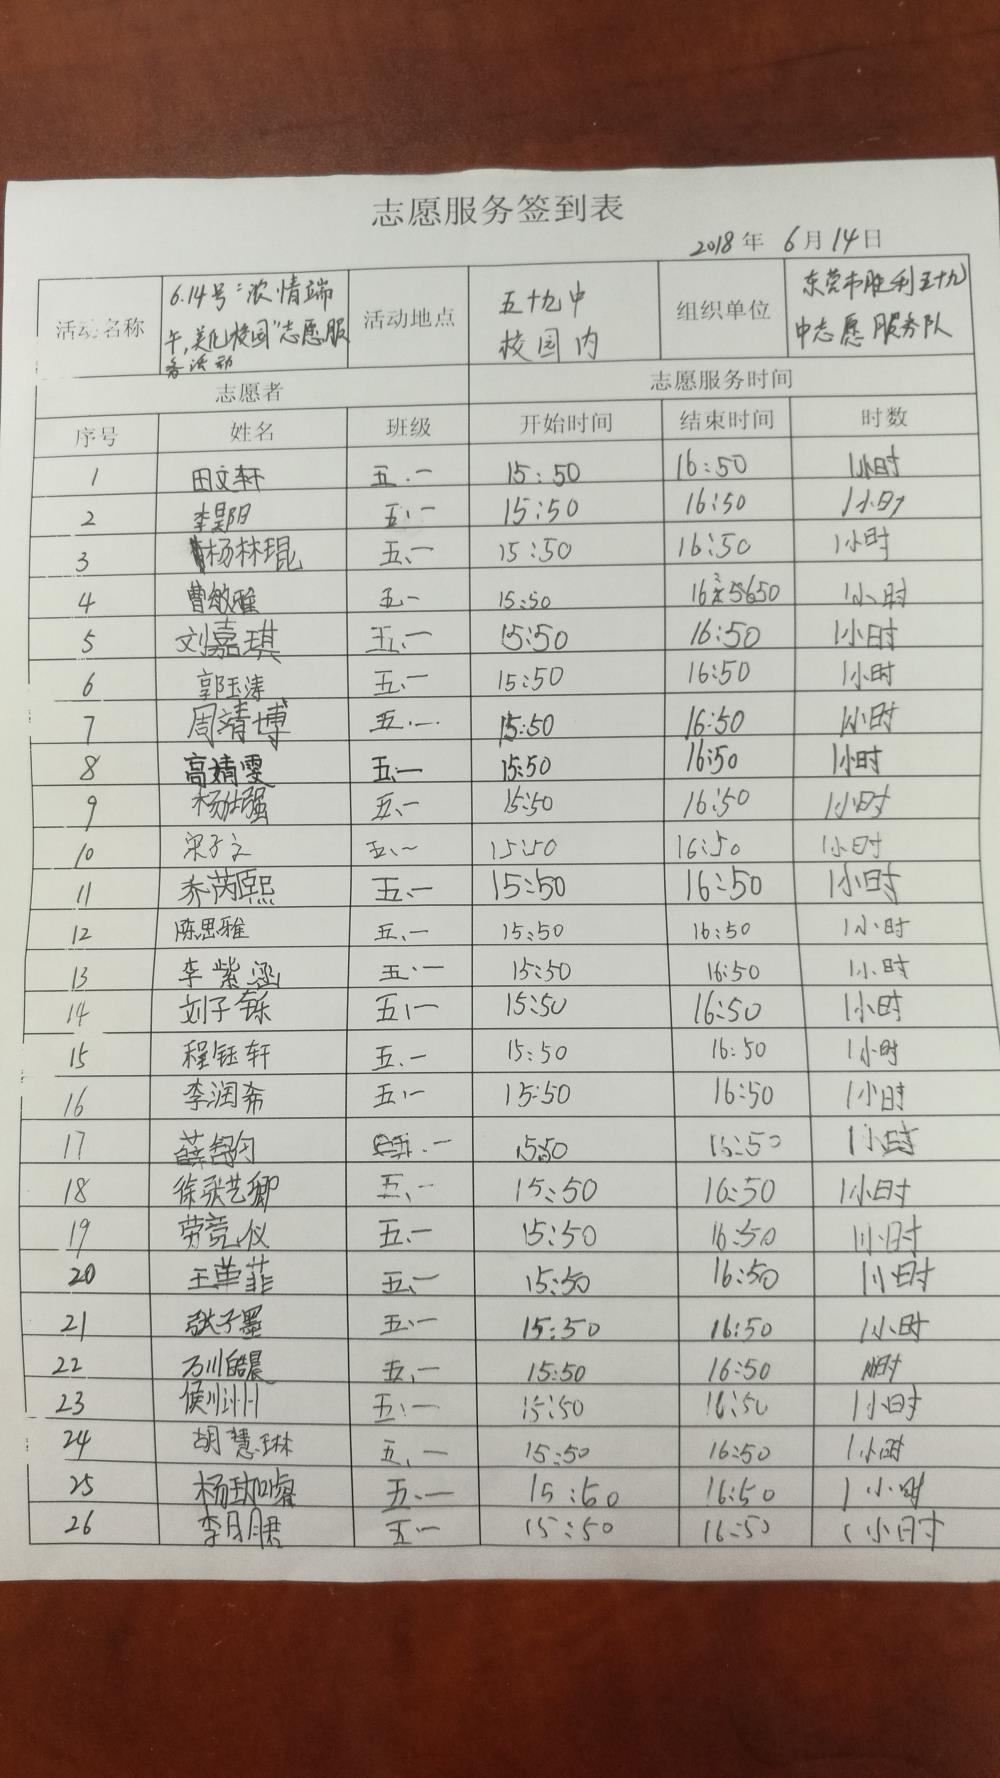 志愿服务签到表
2018年 6月14日
活动名称 6.14号"浓情端午,美化校园"志愿服务活动 活动地点 五十九中校园内 组织单位 东营市胜利五十九中志愿服务队
志愿者 志愿服务时间
序号 姓名 班级 开始时间 结束时间 时数
1 田文轩 五.一 15:50 16:50 1小时
2 李昊阳 五.一 15:50 16:50 1小时
3 杨林琨 五.一 15:50 16:50 1小时
4 曹敏雅 五一 15:50 1650 1小时
5 刘嘉琪 五.一 15:50 16:50 1小时
6 郭玉涛 五.一 15:50 16:50 1小时
7 周靖博 五.一 15:50 16:50 1小时
8 高婧雯 五.一 15:50 16:50 1小时
9 杨仕强 五.一 15:50 16:50 1小时
10 宋子文 五.一 15:50 16:50 1小时
11 乔芮熙 五.一 15:50 16:50 1小时
12 陈思雅 五.一 15:50 16:50 1小时
13 李紫涵 五.一 15:50 16:50 1小时
14 刘子铄 五.一 15:50 16:50 1小时
15 程钰轩 五.一 15:50 16:50 1小时
16 李润希 五.一 15:50 16:50 1小时
17 薛 五.一 15:50 16:50 1小时
18 徐张艺卿 五.一 15:50 16:50 1小时
19 劳竞仪 五.一 15:50 16:50 1小时
20 王菲 五.一 15:50 16:50 1小时
21 张子墨 五.一 15:50 16:50 1小时
22 万川皓晨 五.一 15:50 16:50 1小时
23 侯州 五.一 15:50 16:50 1小时
24 胡慧琳 五.一 15:50 16:50 1小时
25 杨 五.一 15:50 16:50 1小时
26 李月珺 五一 15:50 16:50 1小时